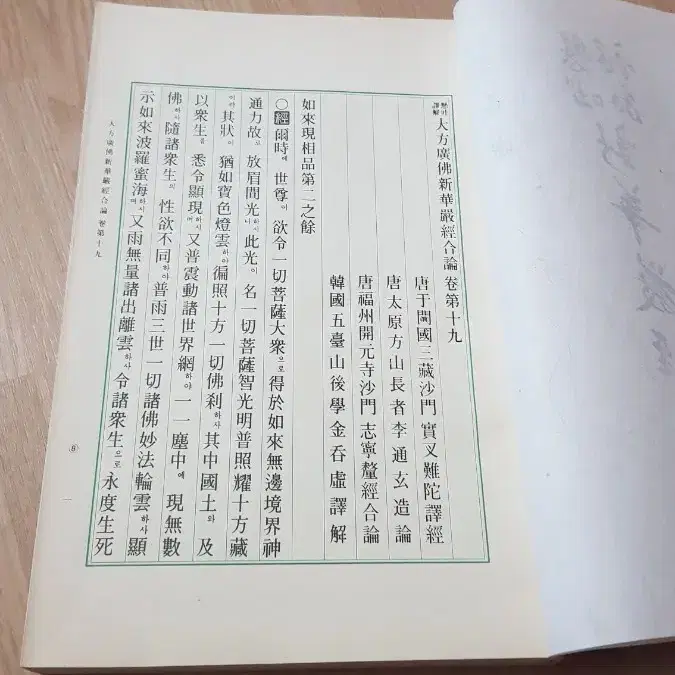 懸吐譯解 大方廣佛新華嚴經合論 卷第十九
唐于闐國三藏沙門 實叉難陀譯經
唐太原方山長者李通玄造論
唐福州開元寺沙門 志寧釐經合論
韓國五臺山後學金吞虛譯解
如來現相品第二之餘
○經爾時에 世尊이 欲令一切菩薩大衆으로 得於如來無邊境界神
通力故로 放眉間光하시니 此光이 名一切菩薩智光明普照耀十方藏
이라 其狀이 猶如寶色燈雲하야 徧照十方一切佛刹하사 其中國土와 及
以衆生을 悉令顯現하시며 又普震動諸世界網하야 一一塵中에 現無數
佛하사 隨諸衆生의 性欲不同하야 普雨三世一切諸佛妙法輪雲하사 顯
示如來波羅蜜海하시며 又雨無量諸出離雲하사 令諸衆生으로 永度生死
大方廣佛新華嚴經合論 卷第十九
⑧
一